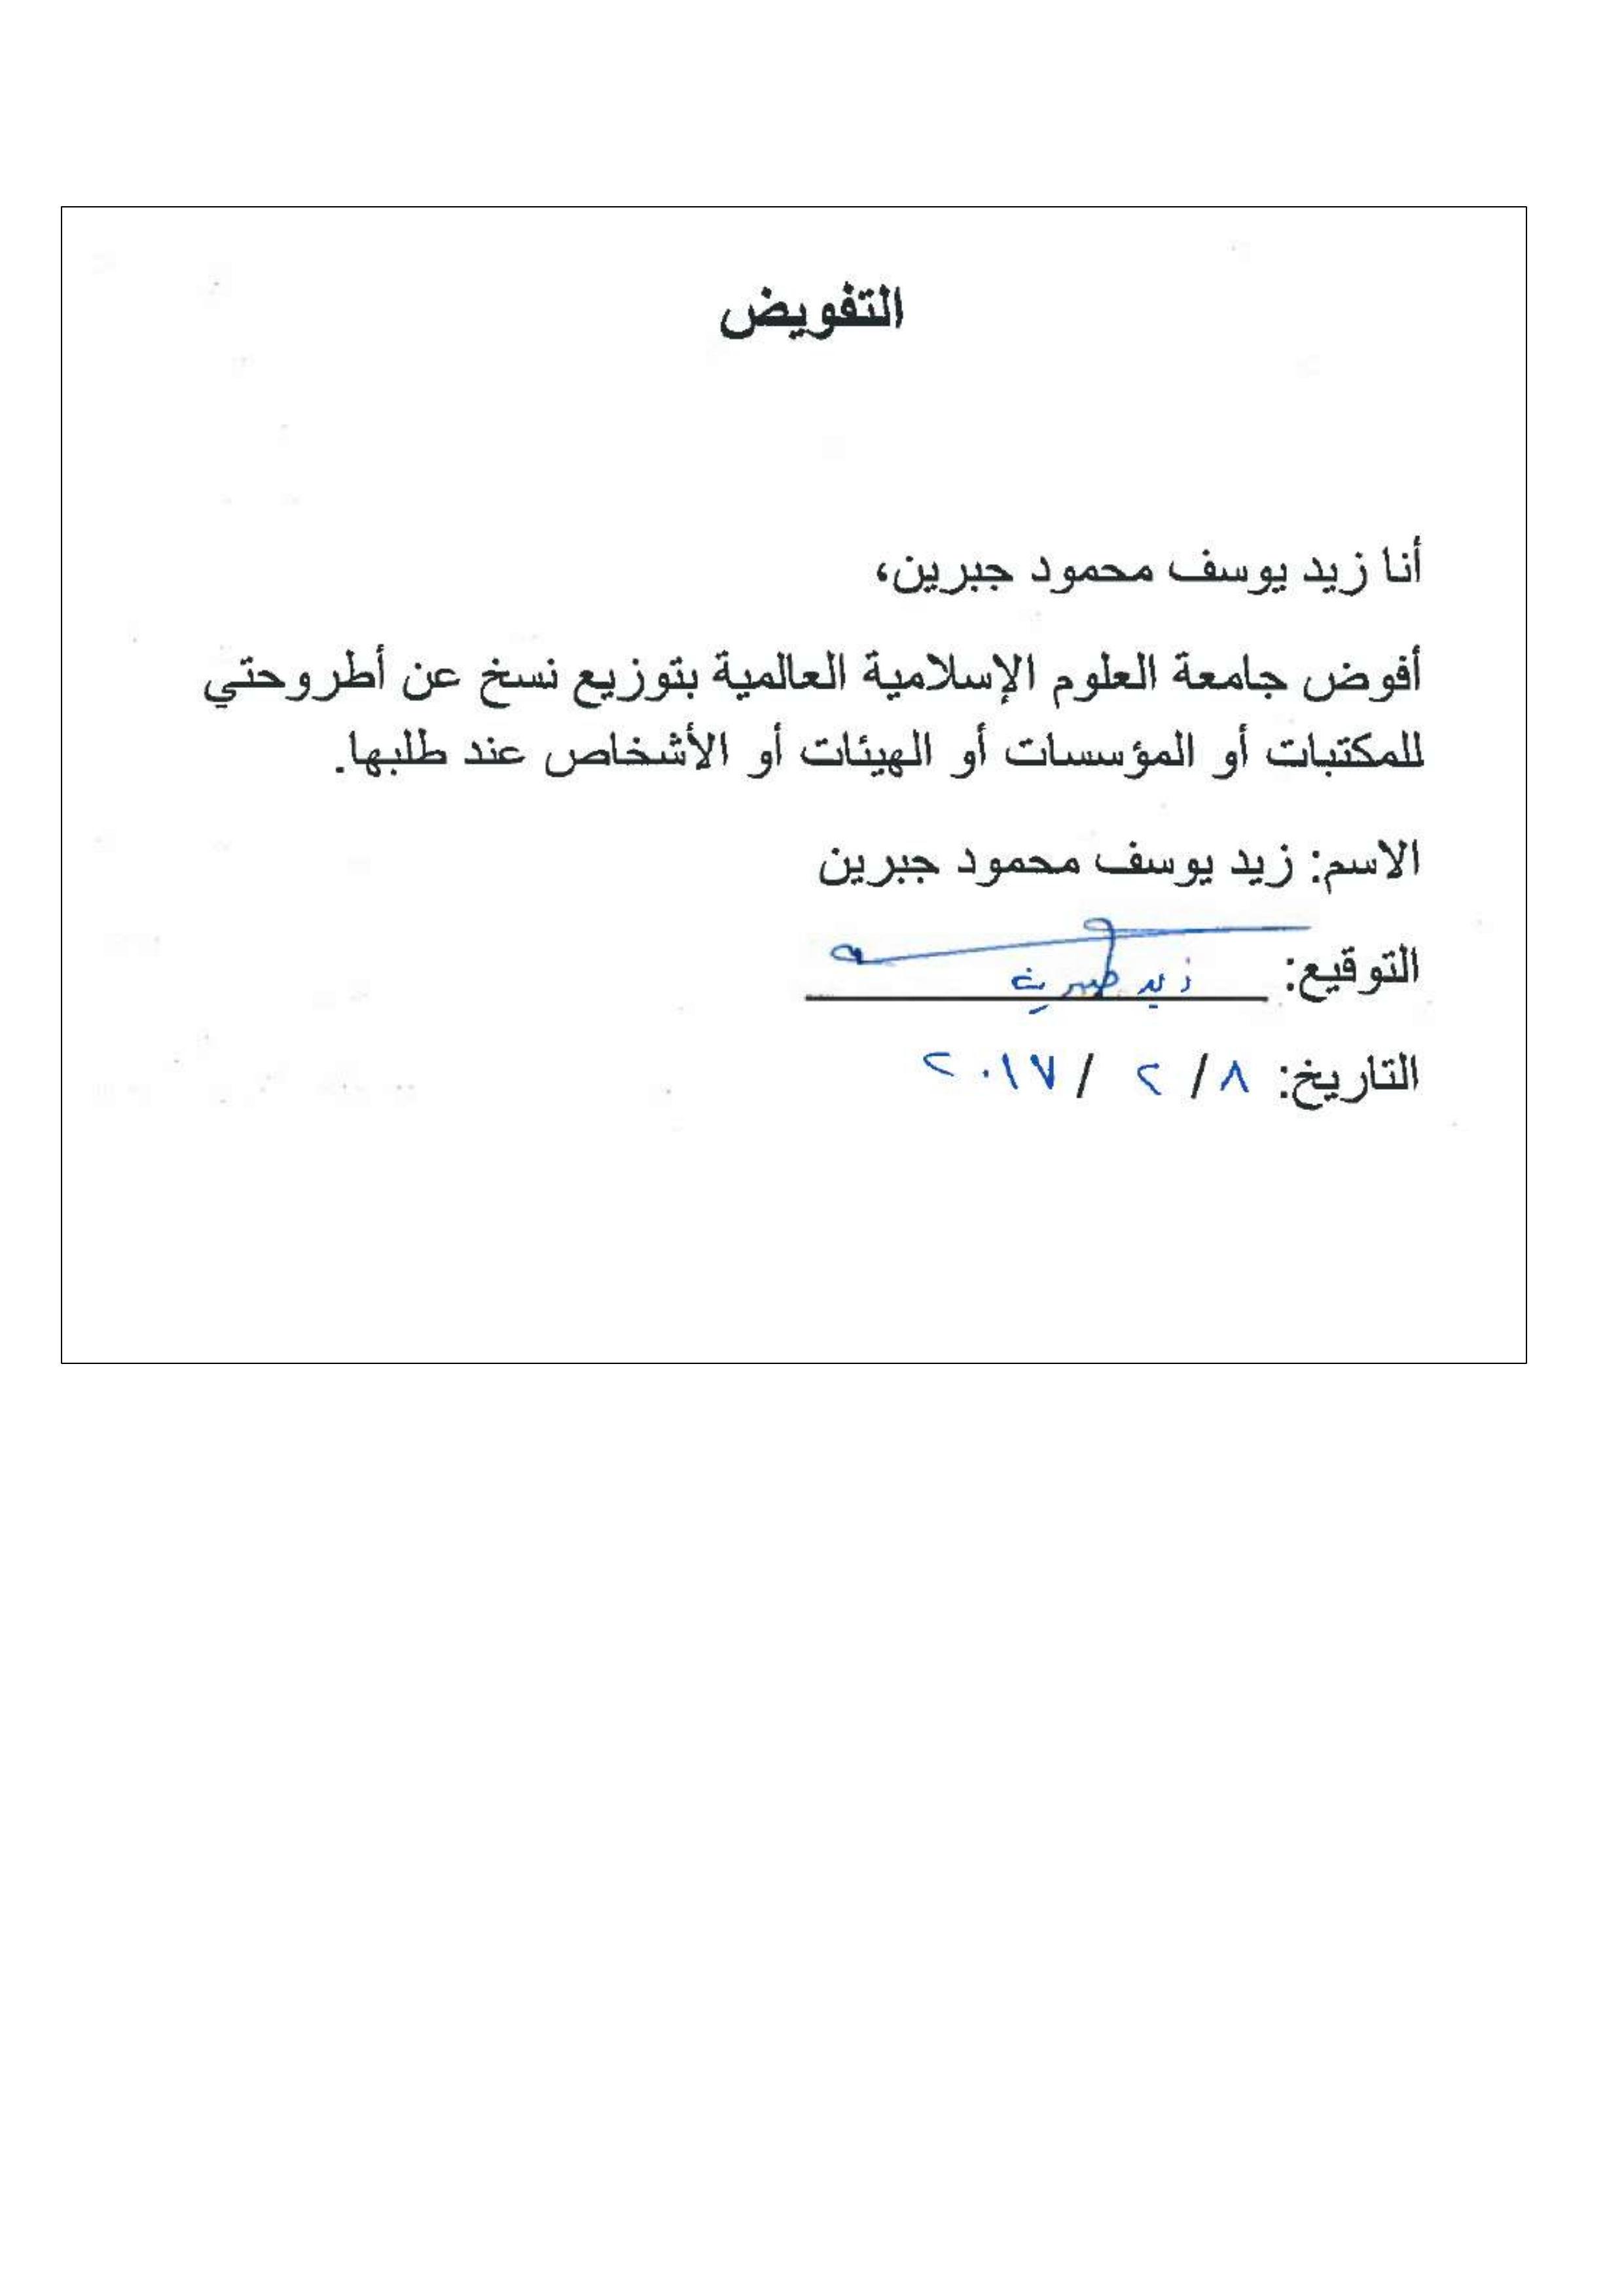 التفويض
أنا زيد يوسف محمود جبرين،
أفوض جامعة العلوم الإسلامية العالمية بتوزيع نسخ عن أطروحتي
للمكتبات أو المؤسسات أو الهيئات أو الأشخاص عند طلبها.
الاسم: زيد يوسف محمود جبرين
التوقيع: زيد جبرين
التاريخ: ٨/ ٢ / ٢٠١٧